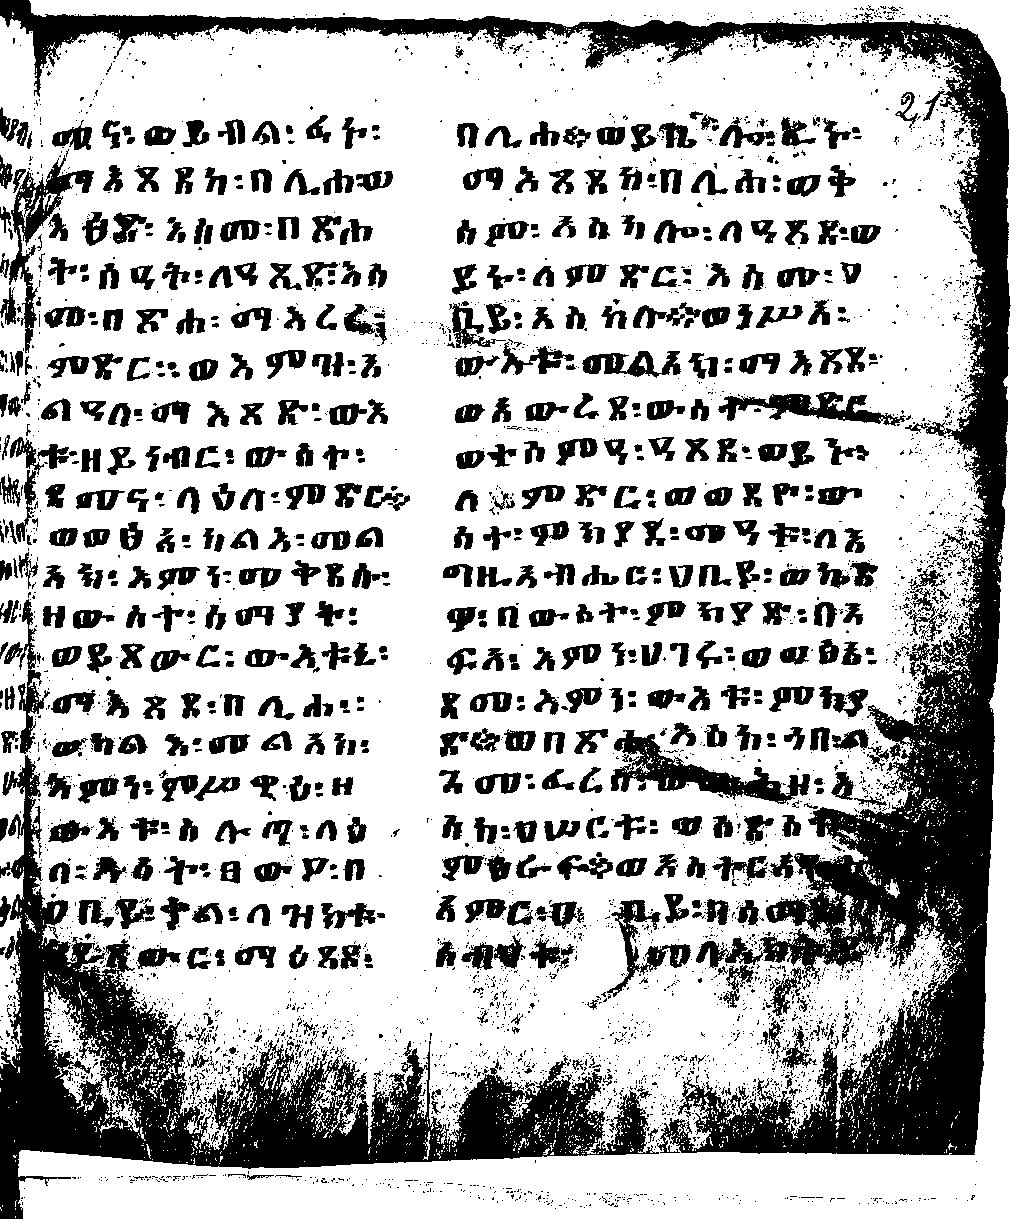 መና፡ ወይብል፡ ፈኑ፡
ማእጸደከ፡በሊሐ፡ወ
እፀድ፡ እስመ፡በጽሐ
ት፡ ሰዓት፡ለዓጺድ፡እስ
መ፡በጽሐ፡ ማእረሬ፡
ምድር፡፡ ወእምዝ፡አ
ልዓለ፡ ማእጸድ፡ ውእ
ቱ፡ዘይነብር፡ ውስተ፡
ደመና፡ ላዕለ፡ምድር።
ወወፅአ፡ ካልእ፡ መል
አክ፡ እምነ፡ መቅደሱ፡
ዘውስተ፡ ሰማያት፡
ወይጸውር፡ ውእቱኒ፡
ማእጸደ፡ በሊሐ፡፡
ወካልእ፡ መልአክ፡
እምነ፡ ምሥዋዒ፡ ዘ
ውእቱ፡ ስሉጣ፡ ላዕ
ለ፡ እሳት፡ ፀውዖ፡ በ
ዐቢይ፡ ቃል፡ ለዝክቱ
ውር፡ ማዕጸደ፡
21
በሊሐ።ወይቤሎ፡ ፈኑ፡
ማእጸደከ፡በሊሐ፡ወቅ
ስም፡ አስካሎ፡ለዓጸደ፡ወ
ይኑ፡ለምድር፡ እስመ፡ሀ
ቢይ፡ አስካሉ።ወነሥአ፡
ውእቱ፡መልአክ፡ማእጸደ፡
ወአውረደ፡ውስተ፡ምድር
ወቀስም ዓ፡ዓጸደ፡ወይነ፡
ለምድር፡ወወደዮ፡ው
ስተ፡ምክያደ፡መዓቱ፡ለእ
ግዚአብሔር፡ሀቢይ፡ወኬድ
ዋ፡በውስተ፡ምክያድ፡በአ
ፍአ፡ እምነ፡ሀገሩ፡ወወፅአ፡
ደመ፡ እምነ፡ ውእቱ፡ ምክያ
ድ።ወበጽሐ እስከ፡ ኀበ፡ል
ጓመ፡ፈረስ፡ እ
ስከ፡ሀሠርቱ፡ ወስድስቱ
ምዕራፍ።ወአስተርአየ ተ
አምር፡ሀቢይ፡በሰማይ
ሰብዐቱ፡ መላእክት